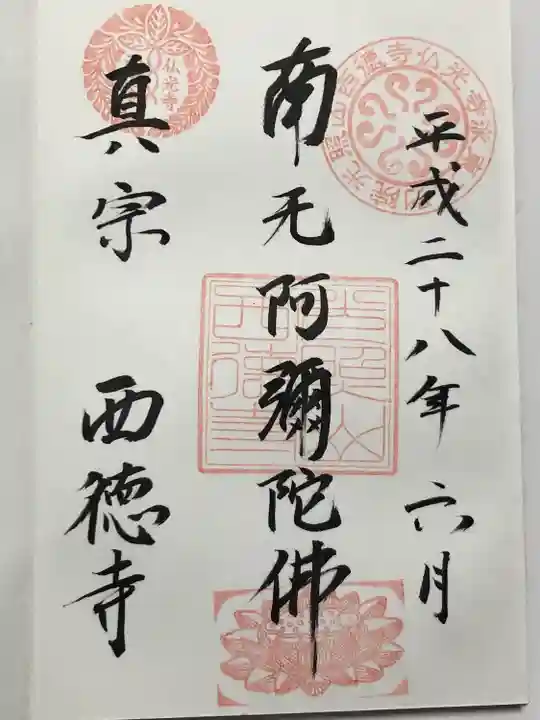 平成二十八年 六月
南无阿彌陀佛
真宗 西德寺
仏光寺